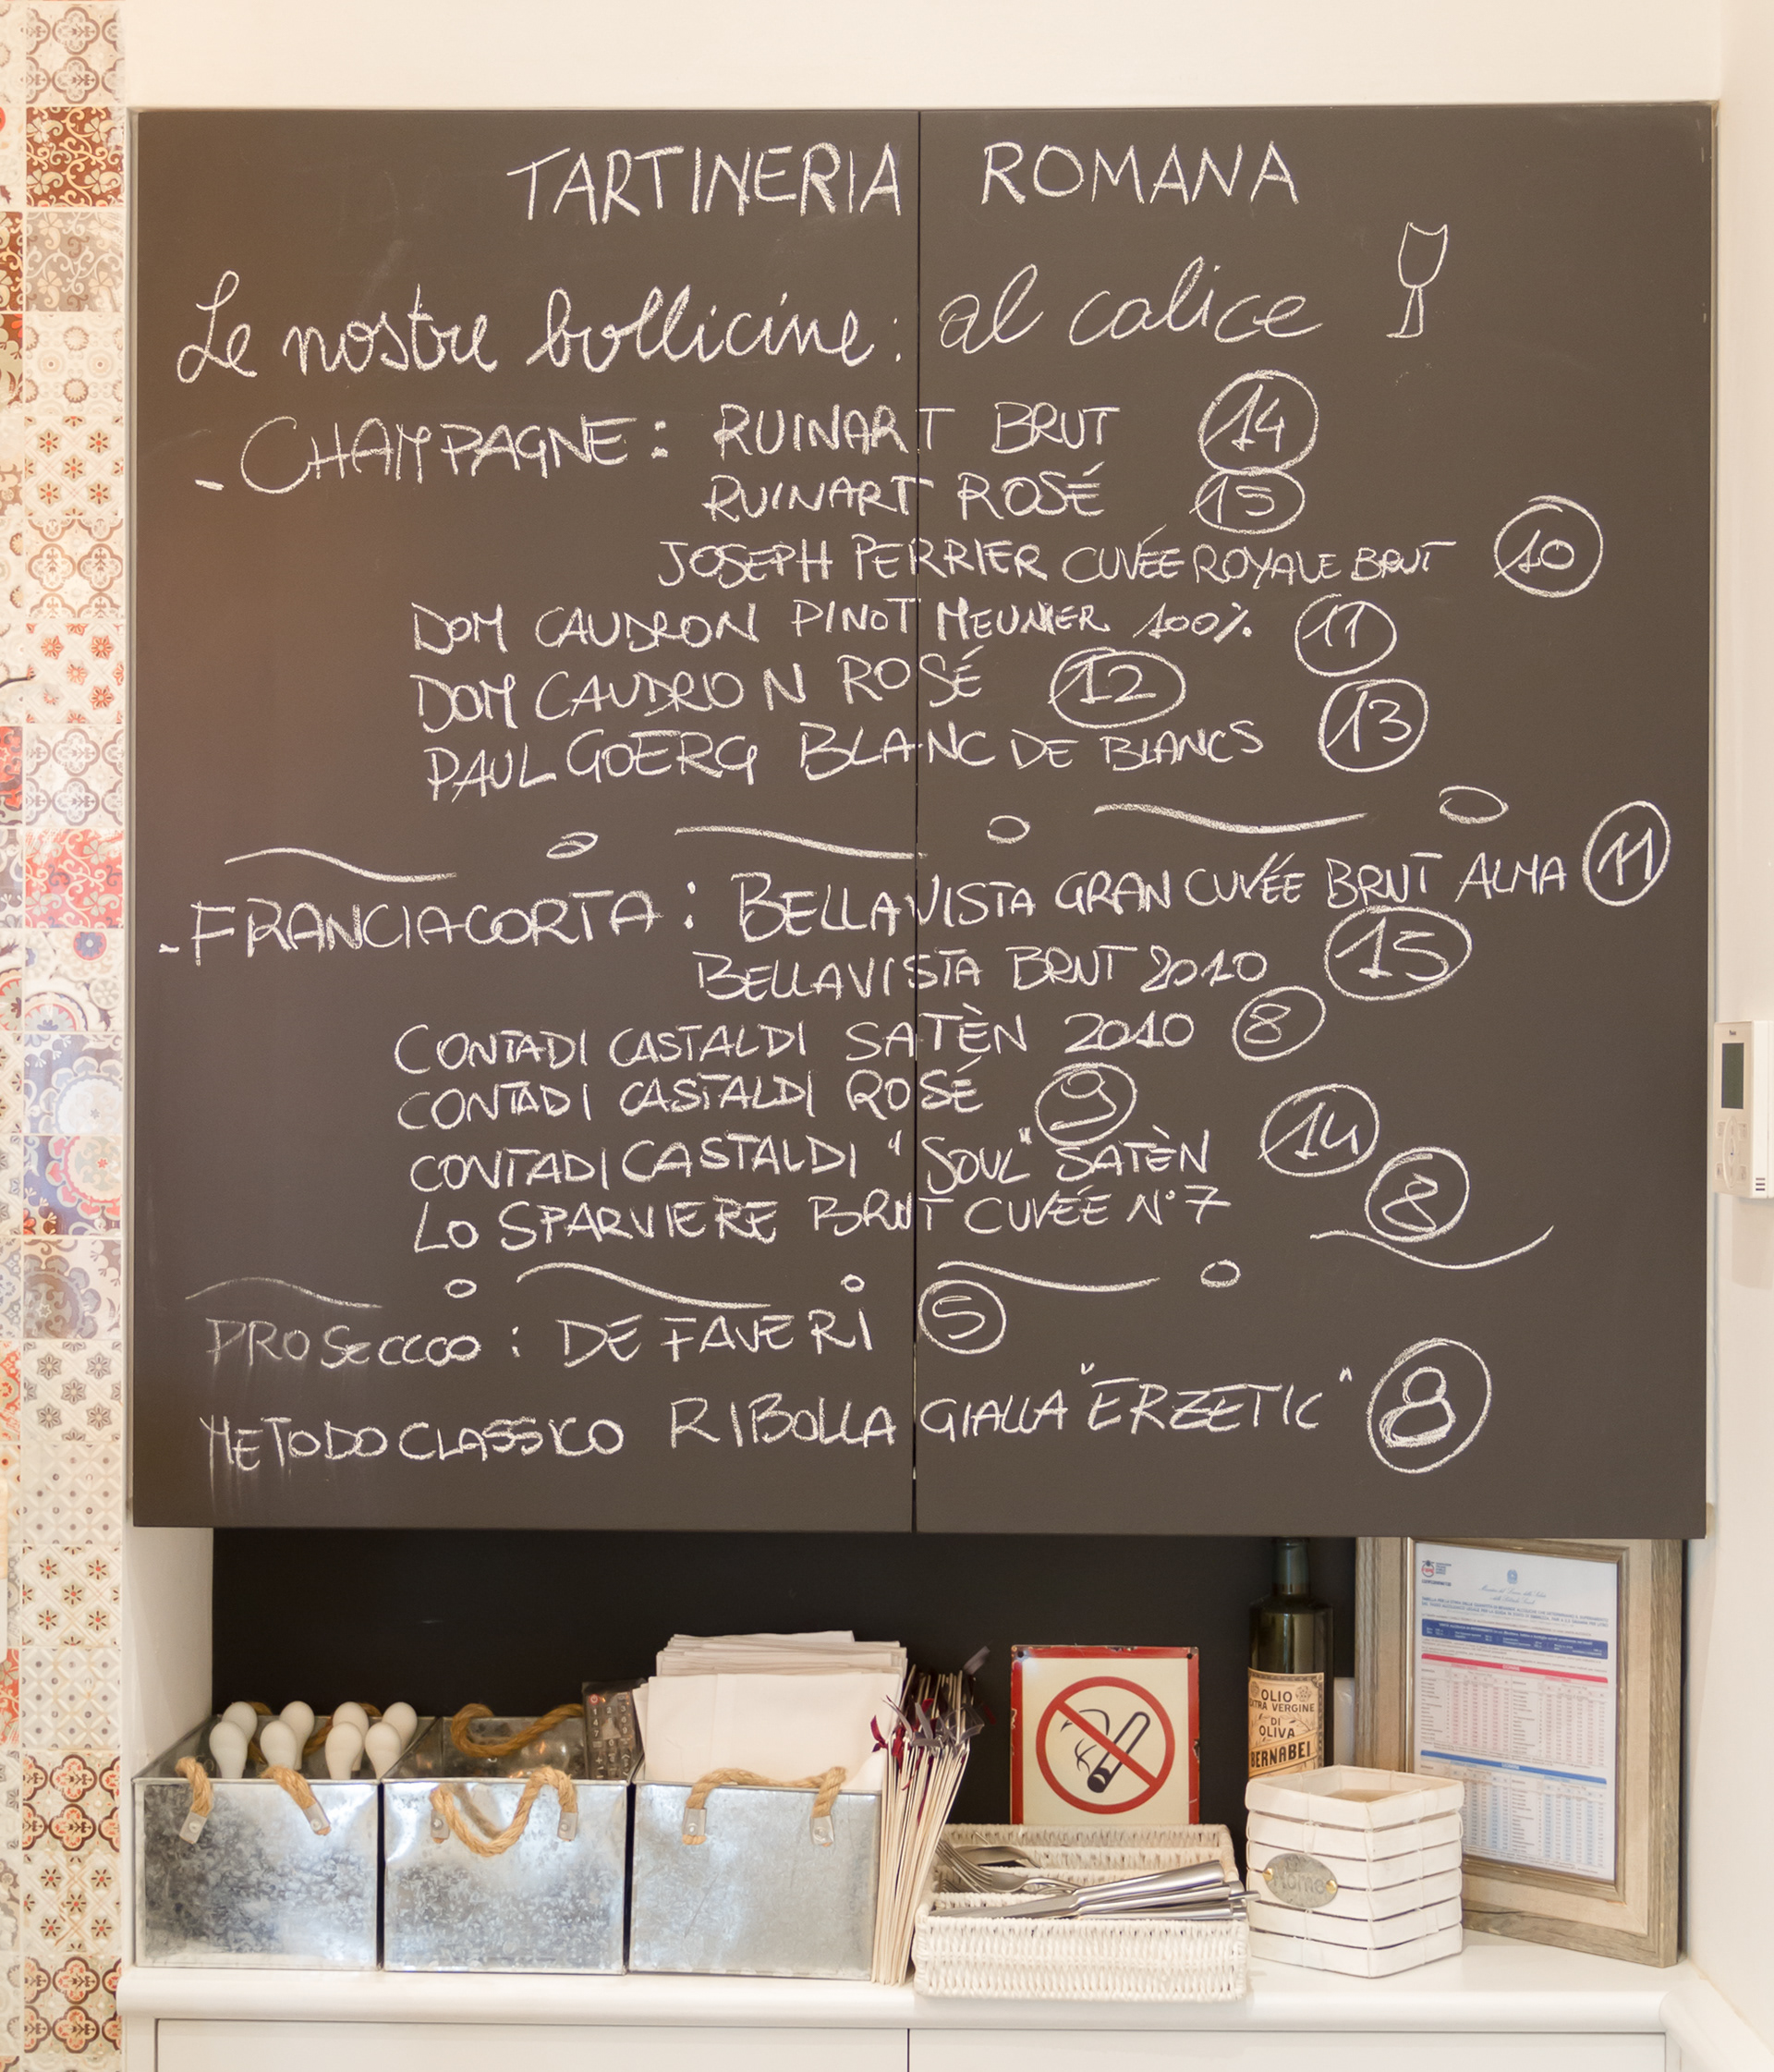 TARTINERIA ROMANA
Le nostre bollicine: al calice
- CHAMPAGNE: RUINART BRUT 14
RUINART ROSÉ 15
JOSEPH PERRIER CUVÉE ROYALE BRUT 10
DOM CAUDRON PINOT MEUNIER 100% 11
DOM CAUDRON ROSÉ 12
PAUL GOERG BLANC DE BLANCS 13
- FRANCIACORTA: BELLAVISTA GRAN CUVÉE BRUT ALMA 11
BELLAVISTA BRUT 2010 15
CONTADI CASTALDI SATÈN 2010 8
CONTADI CASTALDI ROSÉ 9
CONTADI CASTALDI "SOUL" SATÈN 14
LO SPARVIERE BRUT CUVÉE N°7 8
PROSECCCO: DE FAVERI 5
METODO CLASSICO RIBOLLA GIALLA "ERZETIC" 8
OLIO
EXTRA VERGINE
DI
OLIVA
BERNABEI
Home